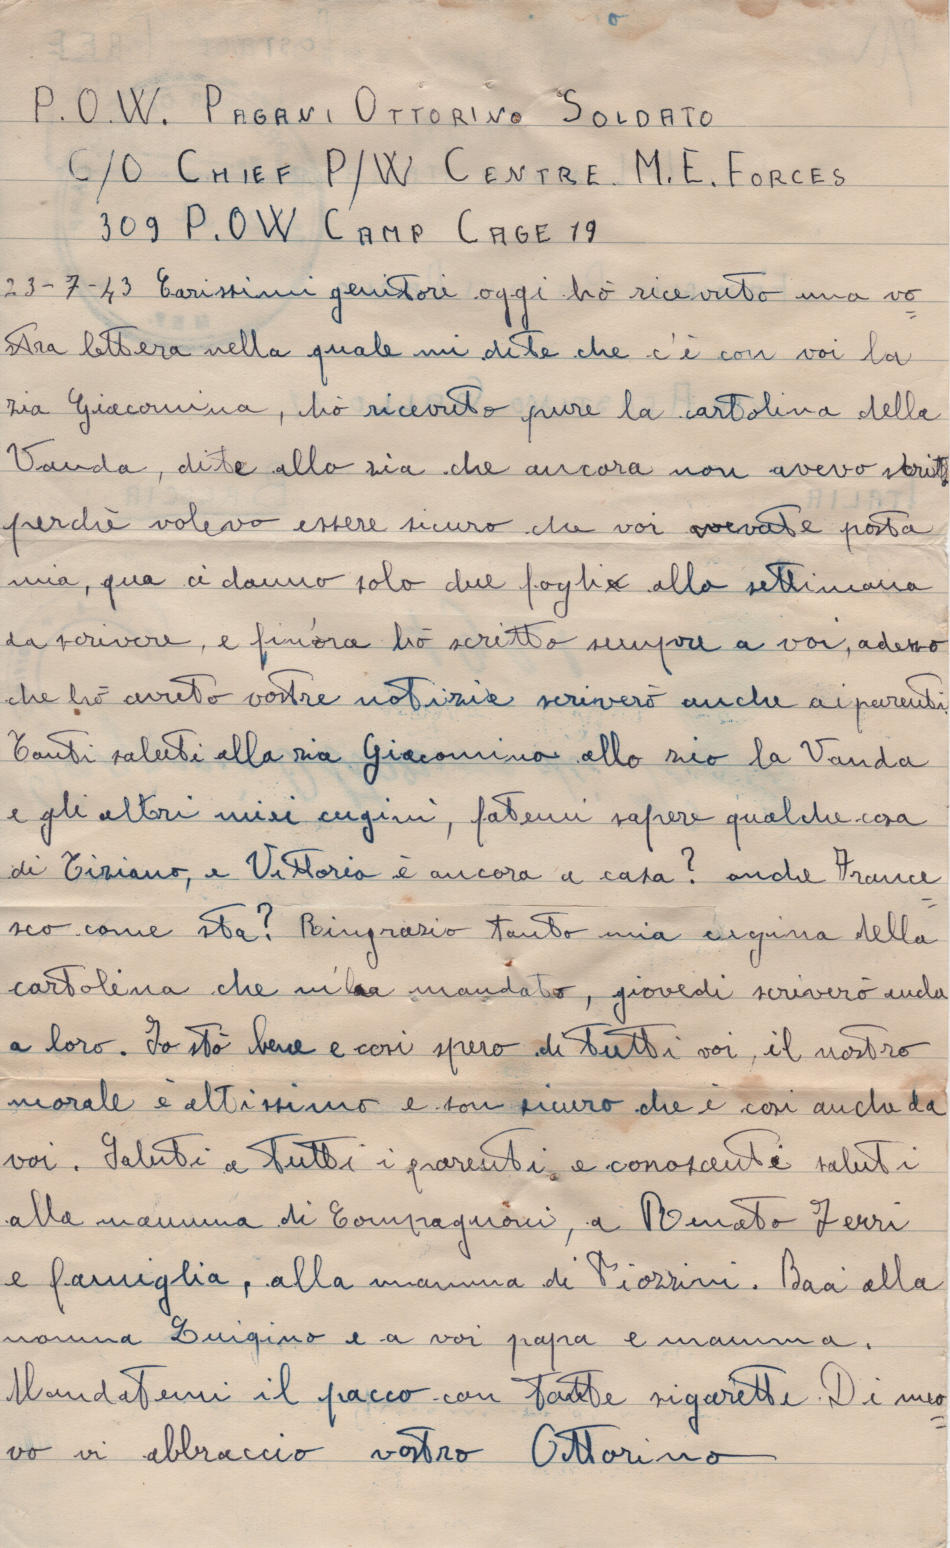 P.O.W. PAGANI OTTORINO SOLDATO
C/O CHIEF P/W CENTRE M.E. FORCES
309 P.O.W CAMP CAGE 19
23-7-43 Carissimi genitori oggi hò ricevuto una vo=
stra lettera nella quale mi dite che c'è con voi la
zia Giacomina, hò ricevuto pure la cartolina della
Vanda, dite allo zia che ancora non avevo scritto
perchè volevo essere sicuro che voi avevate posta
mia, qua ci danno solo due fogli alla settimana
da scrivere, e fin'ora hò scritto sempre a voi, adesso
che hò avuto vostre notizie scriverò anche ai parenti.
Tanti saluti alla zia Giacomina allo zio la Vanda
e gli altri miei cugini, fatemi sapere qualche cosa
di Tiziano, e Vittorio è ancora a casa? anche France=
sco come sta? Ringrazio tanto mia cugina della
cartolina che m'ha mandato, giovedi scriverò anche
a loro. Io stò bene e cosi spero di tutti voi, il nostro
morale è altissimo e son sicuro che è cosi anche da
voi. Saluti a tutti i parenti e conoscenti saluti
alla mamma di Compagnoni, a Renato Ferri
e famiglia, alla mamma di Piozzini. Baci alla
nonna Luigino e a voi papa e mamma.
Mandatemi il pacco con tante sigarette. Di nuo=
vo vi abbraccio vostro Ottorino